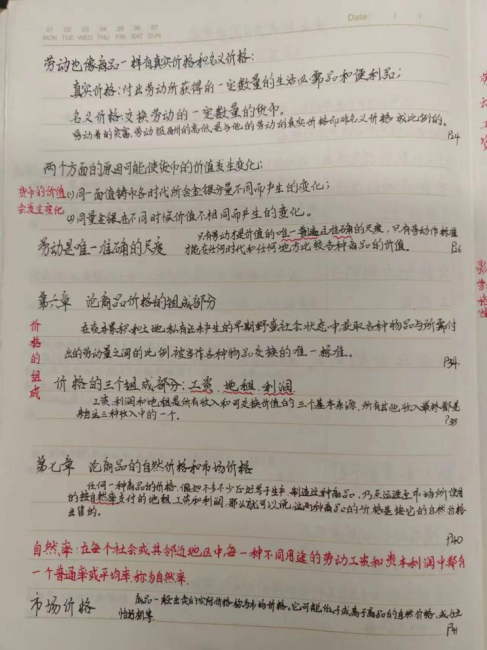 Date:    /    /
MON TUE WED THU FRI SAT SUN
劳动也像商品一样有真实价格和名义价格:
真实价格:付出劳动所获得的一定数量的生活必需品和便利品;
名义价格:交换劳动的一定数量的货币。
劳动者的贫富、劳动报酬的高低是与他的劳动的真实价格而非名义价格成比例的。
P24
两个方面的原因可能使货币的价值发生变化:
货币的价值
会发生变化
(1)同一面值铸币各时代所含金银分量不同而产生的变化;
(2)同量金银在不同时候价值不相同而产生的变化。
劳动是唯一准确的尺度
只有劳动才是价值的唯一普遍且准确的尺度,只有劳动作标准
才能在任何时代和任何地方比较各种商品的价值。
P26
第六章 论商品价格的组成部分
价格的组成
在没有累积和土地私有还未产生的早期野蛮社会状态中,获取各种物品与所需付
出的劳动量之间的比例,被当作各种物品交换的唯一标准。
P34
价格的三个组成部分:工资、地租、利润
工资、利润和地租是所有收入和可交换价值的三个基本来源,所有其他收入最终都是
来自这三种收入中的一个。
P35
第七章 论商品的自然价格和市场价格
任何一种商品的价格,假如不多不少正好等于生产、制造这种商品,乃至运送至市场所使用
的按自然率支付的地租、工资和利润,那么就可以说,这种商品的价格是按它的自然价格
出售的。
P40
自然率:在每个社会或其邻近地区中,每一种不同用途的劳动工资和资本利润中都有
一个普通率或平均率,称为自然率.
市场价格
商品一般出卖的实际价格称为市场价格。它可能低于或高于商品的自然价格,或与之
恰好相等
P41